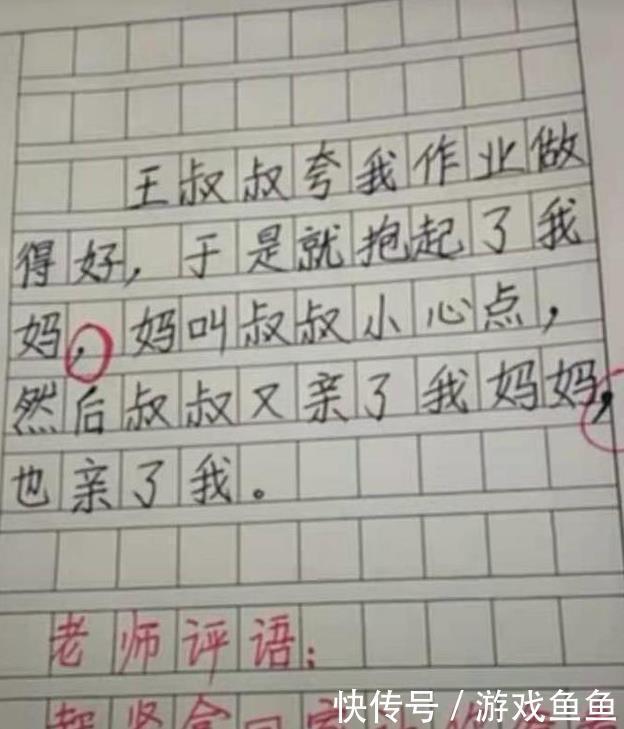 王叔叔夸我作业做
得好，于是就抱起了我
妈，妈叫叔叔小心点，
然后叔叔又亲了我妈妈，
也亲了我。
老师评语：
快传号／游戏鱼鱼